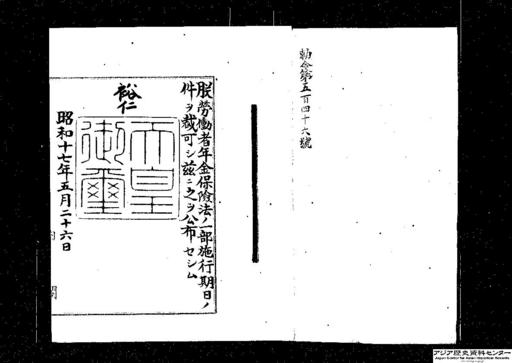 勅令第五百四十六號
朕勞働者年金保險法ノ一部施行期日ノ
件ヲ裁可シ茲ニ之ヲ公布セシム
裕仁
天皇
御璽
昭和十七年五月二十六日
内閣
アジア歴史資料センター
Japan Center for Asian Historical Records